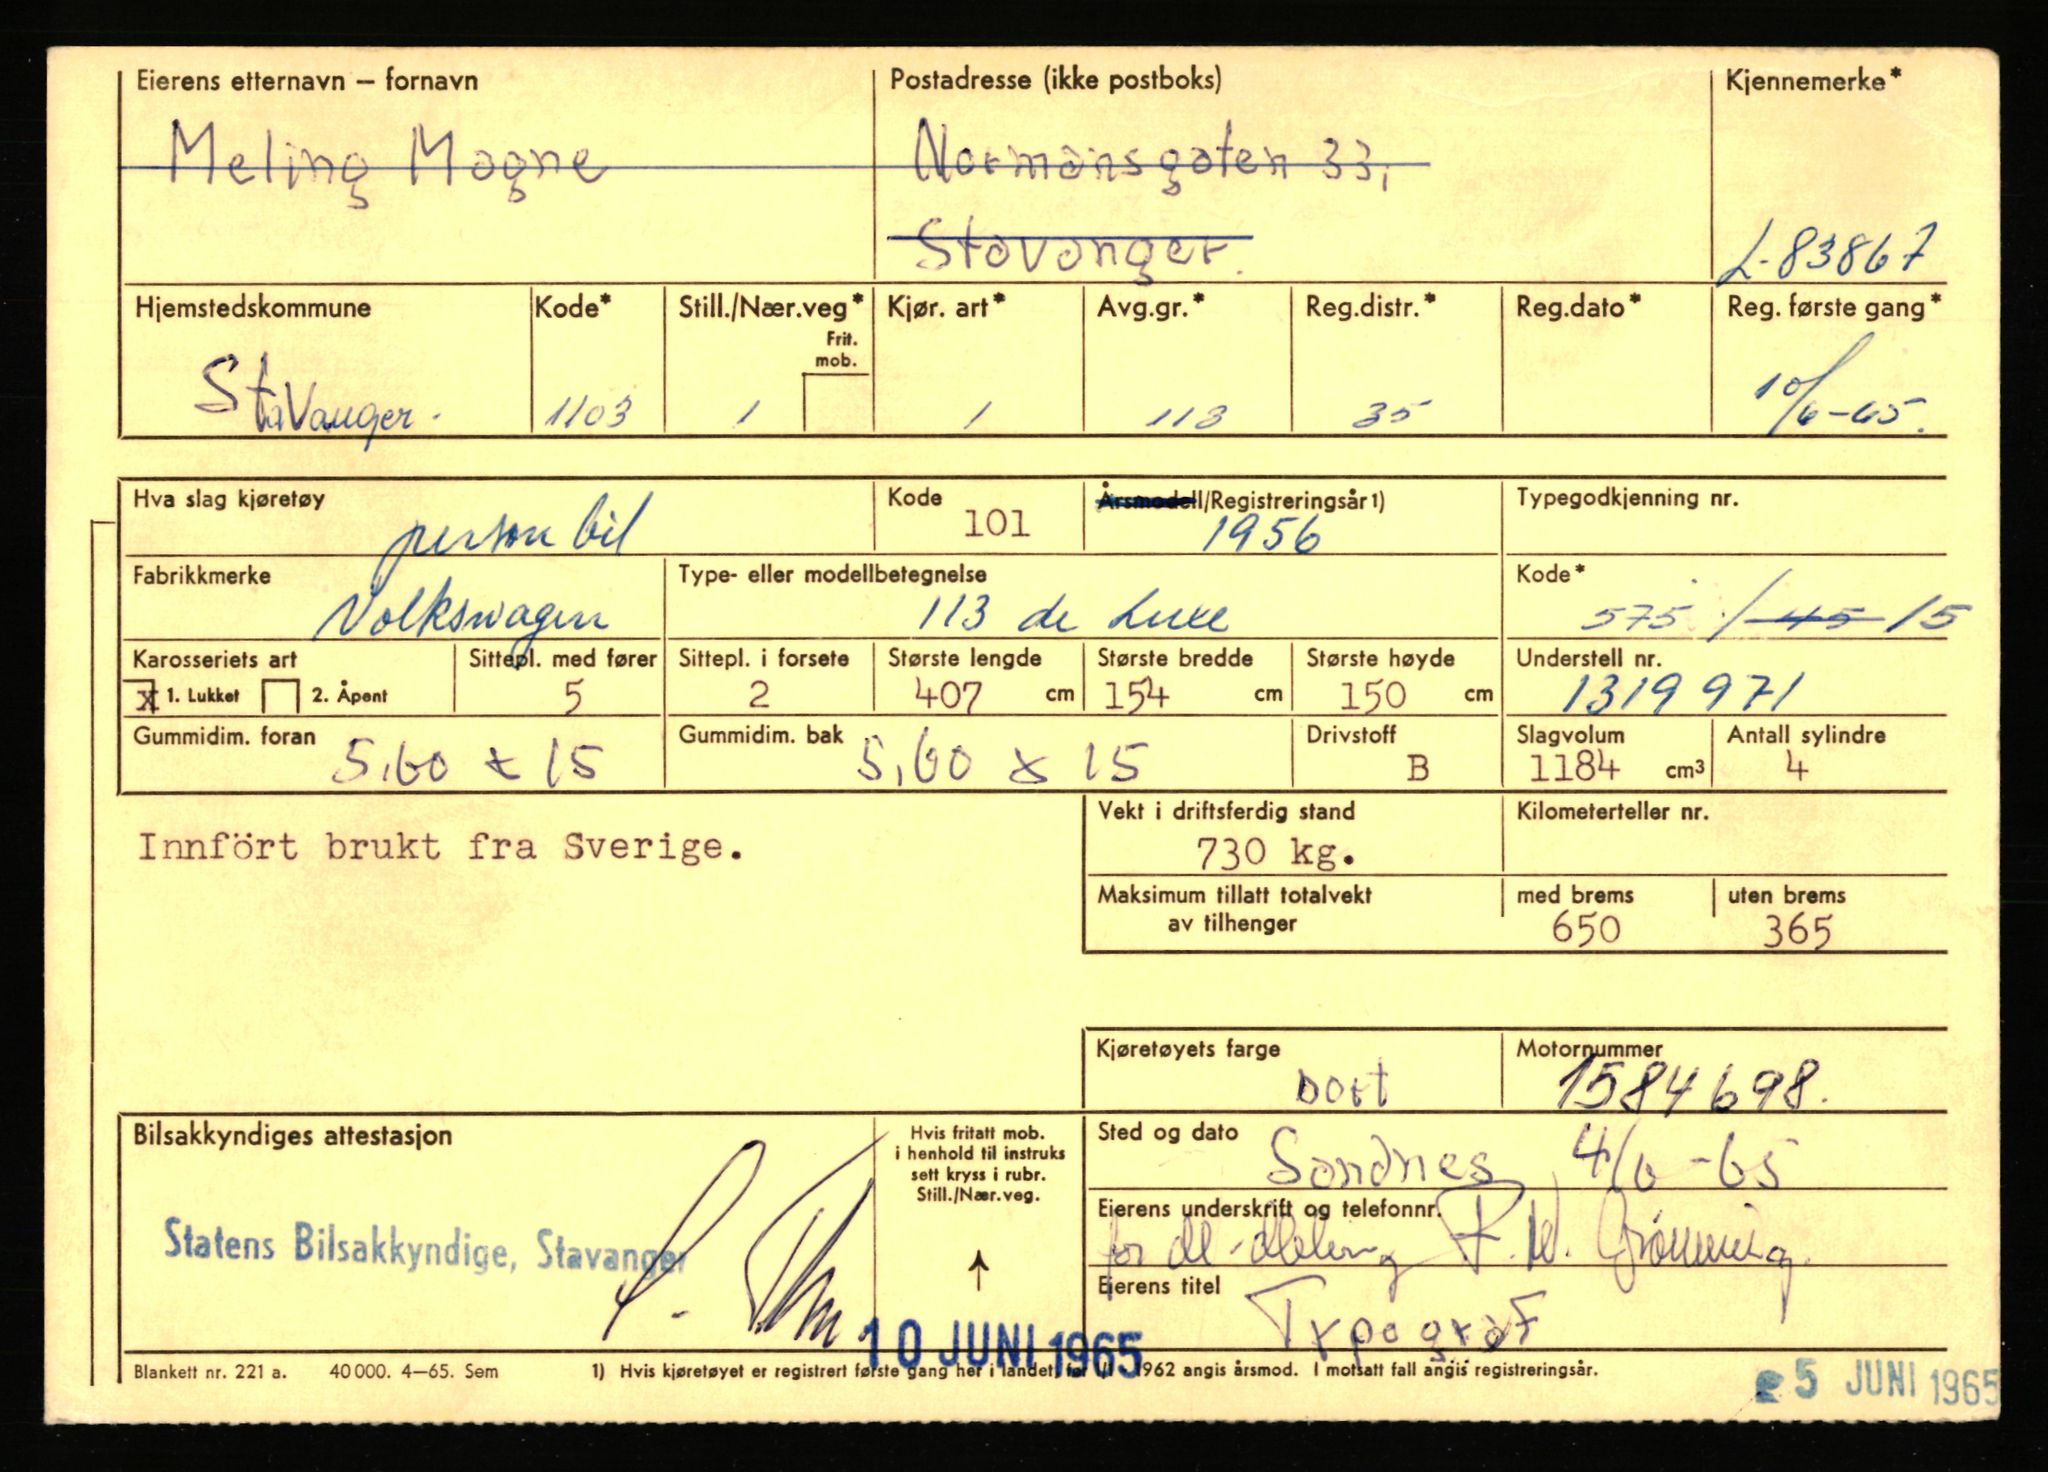 Eierens etternavn – fornavn Postadresse (ikke postboks) Kjennemerke*
Meling Magne Normansgaten 33,
Stavanger. L-83867
Hjemstedskommune Kode* Still./Nær.veg* Kjør. art* Avg.gr.* Reg.distr.* Reg.dato* Reg. første gang*
Frit.
mob.
Stavanger. 1103 1 1 113 35 10/6-65.
Hva slag kjøretøy Kode Årsmodell/Registreringsår1) Typegodkjenning nr.
person bil 101 1956
Fabrikkmerke Type- eller modellbetegnelse Kode*
Volkswagen 113 de Luxe 575 / 45 15
Karosseriets art Sittepl. med fører Sittepl. i forsete Største lengde Største bredde Største høyde Understell nr.
x 1. Lukket 2. Åpent 5 2 407 cm 154 cm 150 cm 1319 971
Gummidim. foran Gummidim. bak Drivstoff Slagvolum Antall sylindre
5,60 x 15 5,60 x 15 B 1184 cm3 4
Vekt i driftsferdig stand Kilometerteller nr.
Innfört brukt fra Sverige. 730 kg.
Maksimum tillatt totalvekt med brems uten brems
av tilhenger 650 365
Kjøretøyets farge Motornummer
sort 1584698.
Bilsakkyndiges attestasjon Hvis fritatt mob. Sted og dato
i henhold til instruks
sett kryss i rubr.
Still./Nær.veg.
Sandnes 4/6-65
Eierens underskrift og telefonnr.
Statens Bilsakkyndige, Stavanger for M. Meling P. W. Grønning.
Eierens titel
Typograf
10 JUNI 1965
Blankett nr. 221 a. 40 000. 4–65. Sem 1) Hvis kjøretøyet er registrert første gang her i landet før 1962 angis årsmod. I motsatt fall angis registreringsår.
5 JUNI 1965